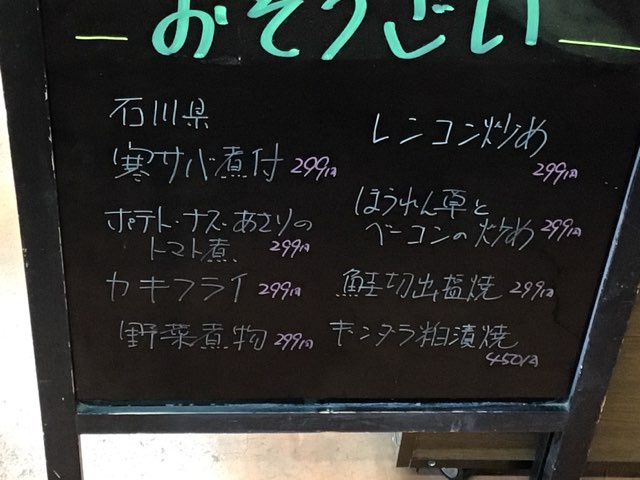 おそうざい
石川県
寒サバ煮付 299円
ポテト・ナス・あさりの
トマト煮 299円
カキフライ 299円
野菜煮物 299円
レンコン炒め
299円
ほうれん草と
ベーコンの炒め 299円
鮭切出塩焼 299円
キンタラ粕漬焼
450円